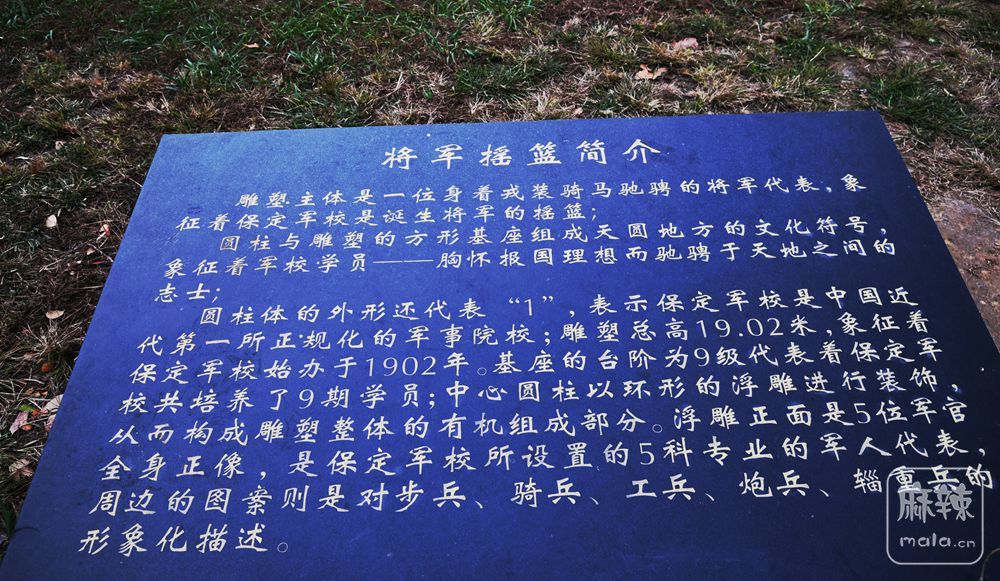 将军摇篮简介
雕塑主体是一位身着戎装骑马驰骋的将军代表，象
征着保定军校是诞生将军的摇篮；
圆柱与雕塑的方形基座组成天圆地方的文化符号，
象征着军校学员——胸怀报国理想而驰骋于天地之间的
志士；
圆柱体的外形还代表“1”，表示保定军校是中国近
代第一所正规化的军事院校；雕塑总高19.02米，象征着
保定军校始办于1902年。基座的台阶为9级代表着保定军
校共培养了9期学员；中心圆柱以环形的浮雕进行装饰，
从而构成雕塑整体的有机组成部分。浮雕正面是5位军官
全身正像，是保定军校所设置的5科专业的军人代表，
周边的图案则是对步兵、骑兵、工兵、炮兵、辎重兵的
形象化描述。
麻辣
mala.cn